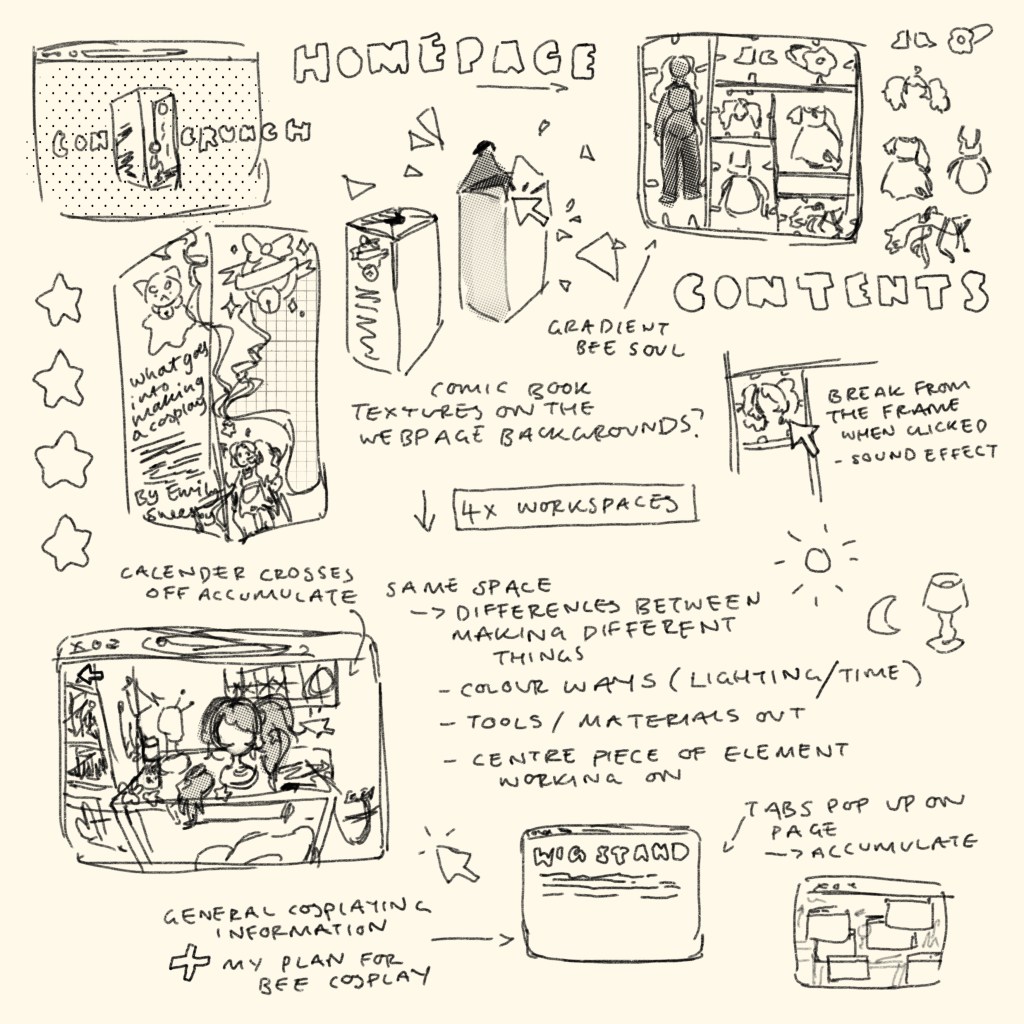 HOMEPAGE
CON CRUNCH
CONTENTS
GRADIENT
BEE SOUL
what goes
into
making
a cosplay
By Emily
COMIC BOOK
TEXTURES ON THE
WEBPAGE BACKGROUNDS?
BREAK FROM
THE FRAME
WHEN CLICKED
- SOUND EFFECT
4X WORKSPACES
CALENDER CROSSES
OFF ACCUMULATE
SAME SPACE
-> DIFFERENCES BETWEEN
MAKING DIFFERENT
THINGS
- COLOUR WAYS (LIGHTING/TIME)
- TOOLS/ MATERIALS OUT
- CENTRE PIECE OF ELEMENT
WORKING ON
TABS POP UP ON
PAGE
-> ACCUMULATE
WIG STAND
GENERAL COSPLAYING
INFORMATION
+ MY PLAN FOR
BEE COSPLAY